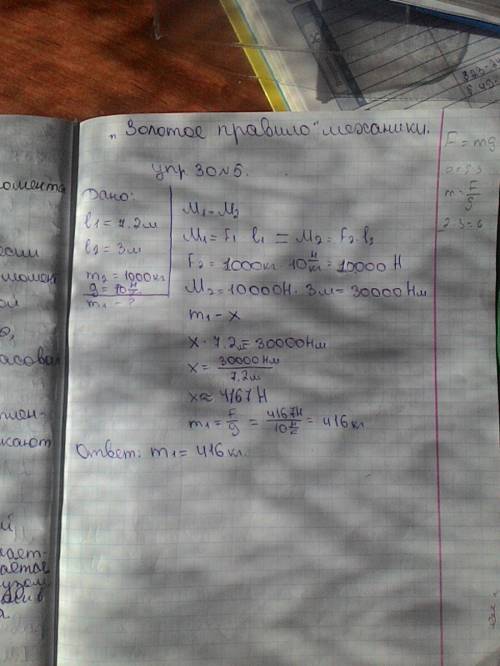 „Золотое правило" механики.
упр 30 №5.
Дано:
l1 = 7.2м
l2 = 3м
m2 = 1000кг
g = 10 Н/кг
m1 - ?
M1 = M2
M1 = F1 · l1 = M2 = F2 · l2
F2 = 1000кг · 10 Н/кг = 10000 Н
M2 = 10000Н · 3м = 30000 Нм
m1 - x
x · 7.2м = 30000Нм
x = 30000Нм / 7.2м
x ≈ 4167 Н
m1 = F/g = 4167Н / 10 Н/кг = 416 кг
Ответ: m1 = 416 кг.
F = mg
m = F/g
2·3=6
момента
момент
ой